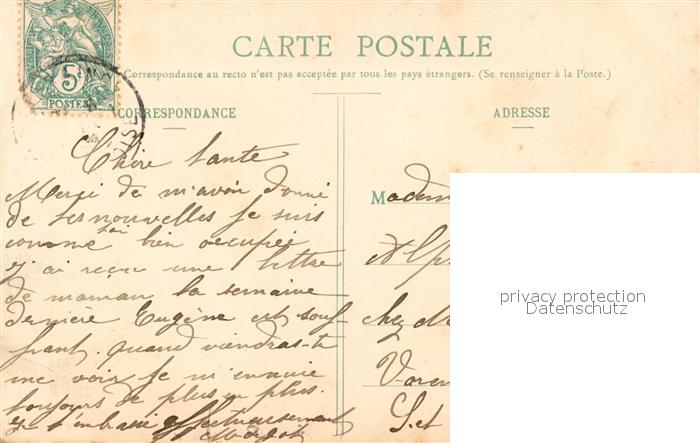 5c
POSTES
CARTE POSTALE
(Correspondance au recto n'est pas acceptée par tous les pays étrangers. (Se renseigner à la Poste.)
CORRESPONDANCE
ADRESSE
Chère tante
Merci de m'avoir donné
de tes nouvelles je suis
comme toi bien occupée
j'ai reçu une lettre
de maman la semaine
dernière Eugène est souf-
frant. quand viendras-tu
me voir je m'ennuie
toujours de plus en plus.
je t'embrasse affectueusement
Margot
Madem
Alp
chez M
Varen
S. et
privacy protection
Datenschutz